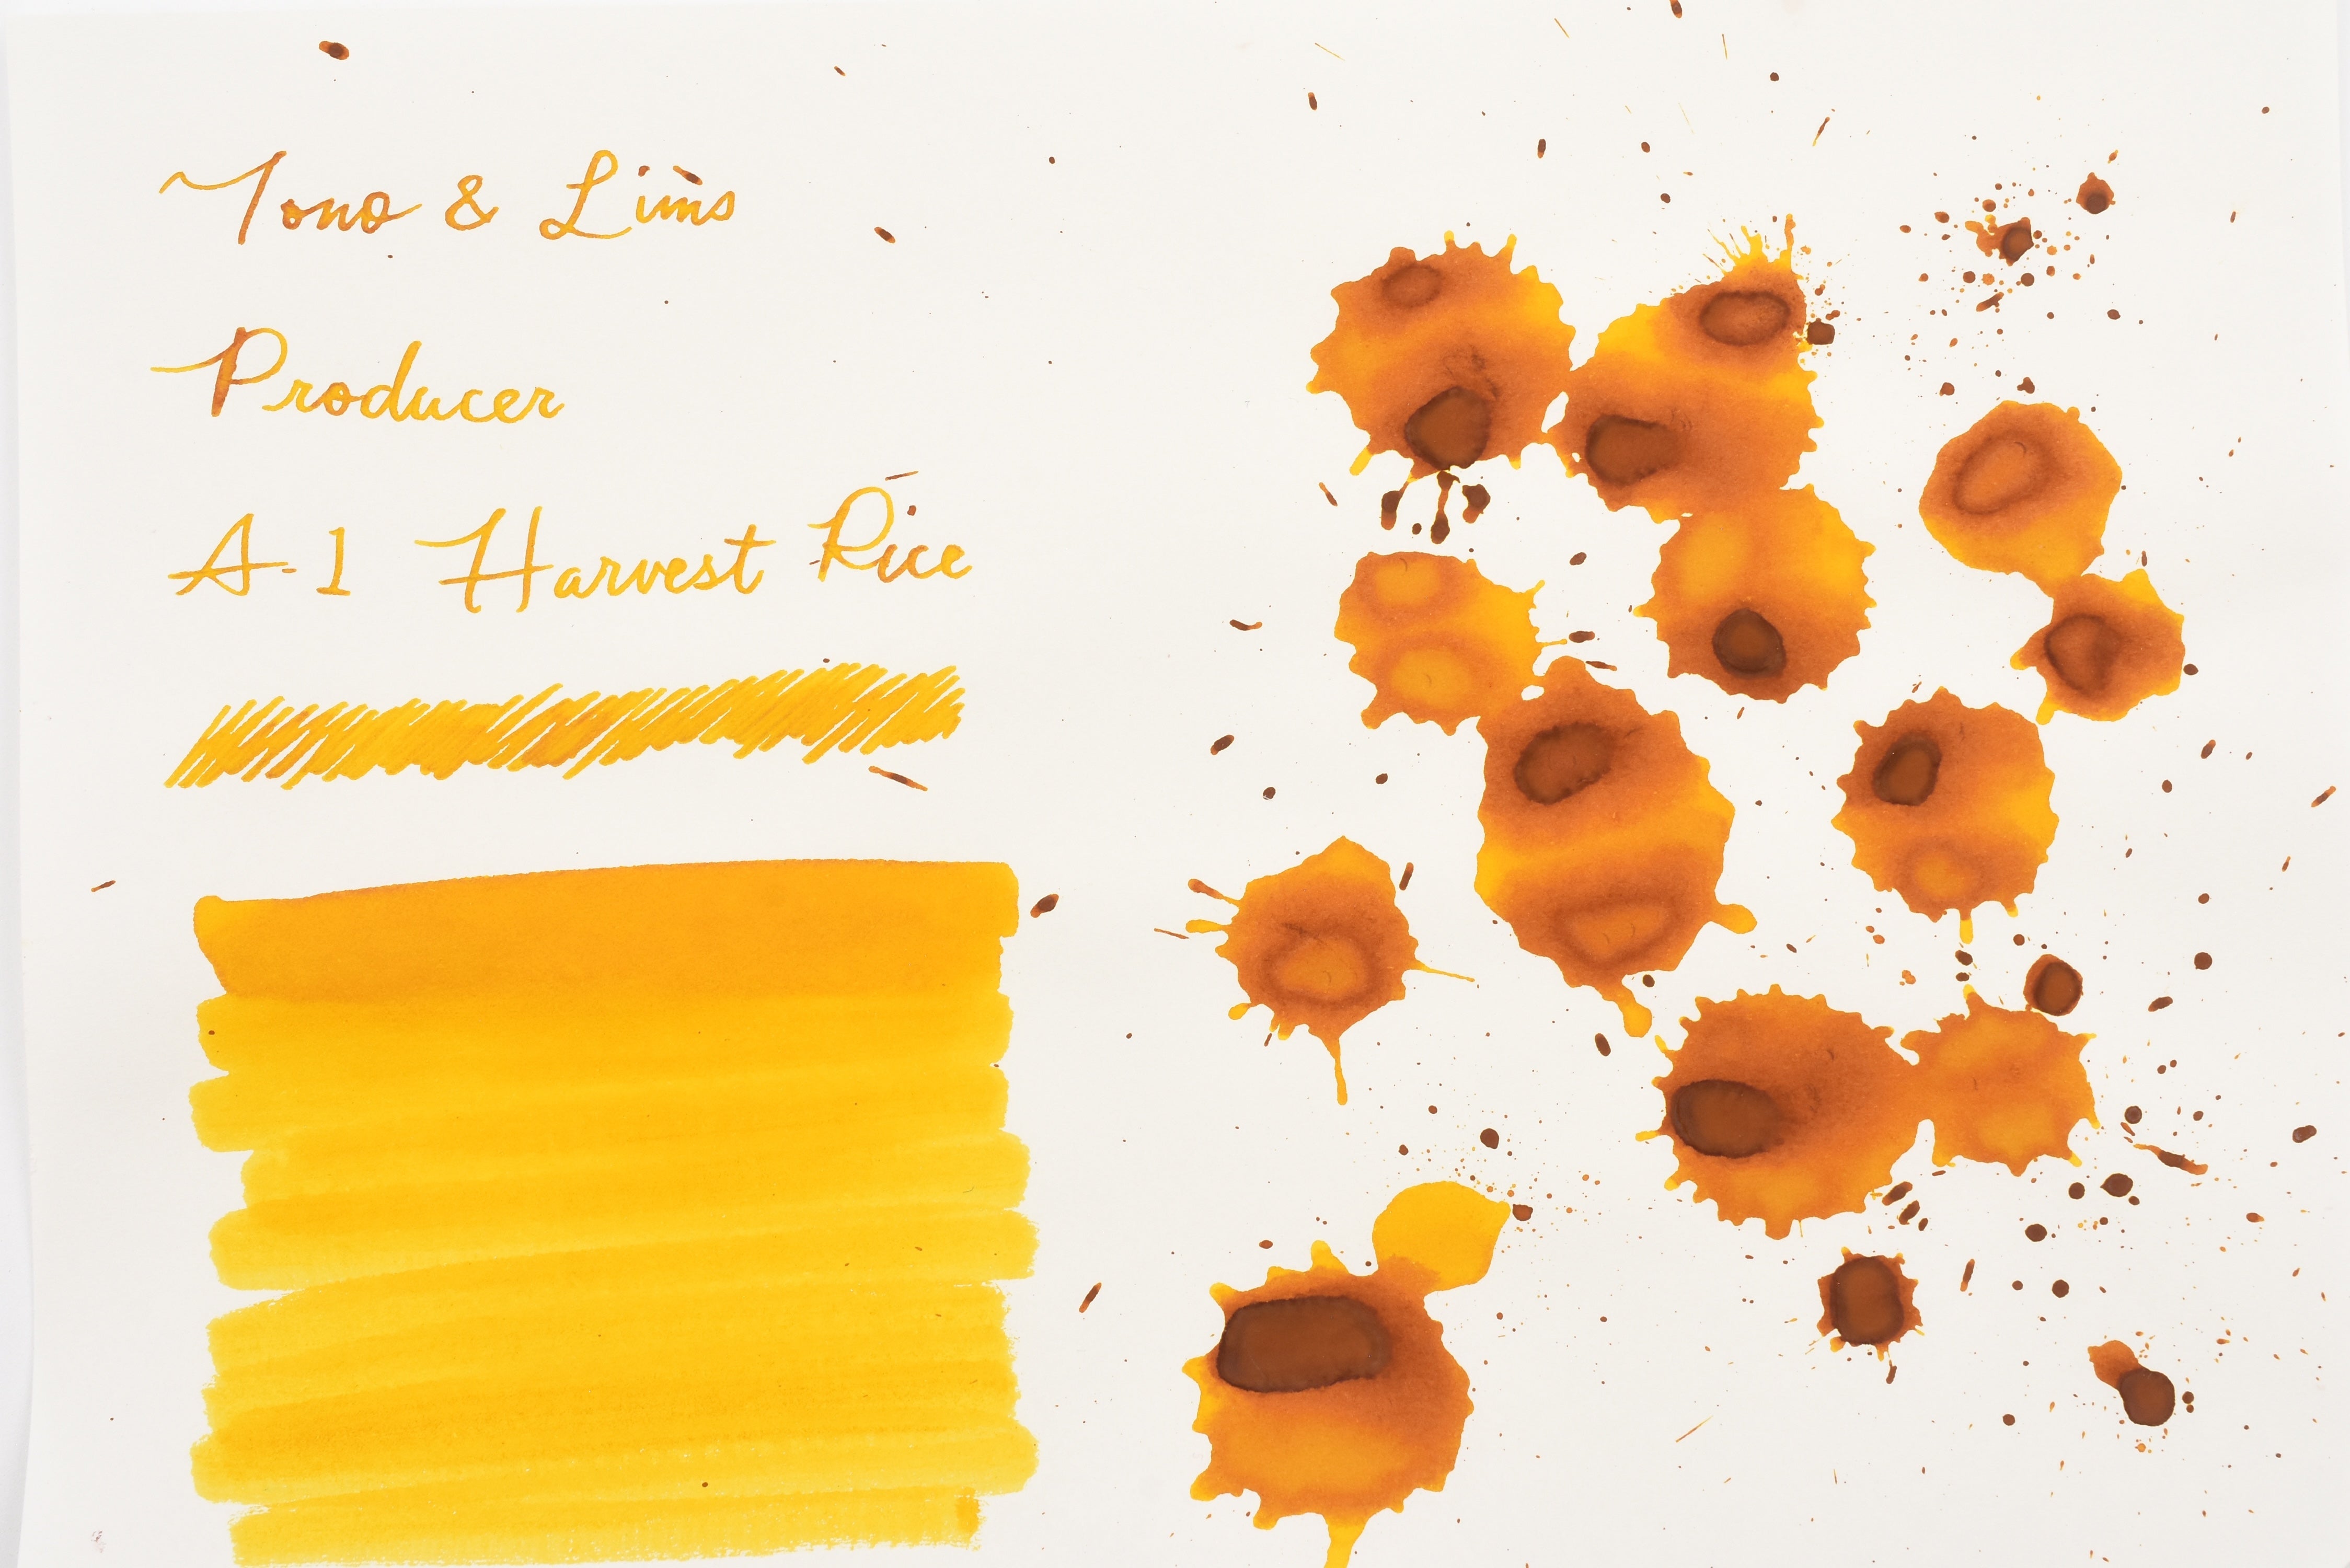 Tono & Lims
Producer
A-1 Harvest Rice